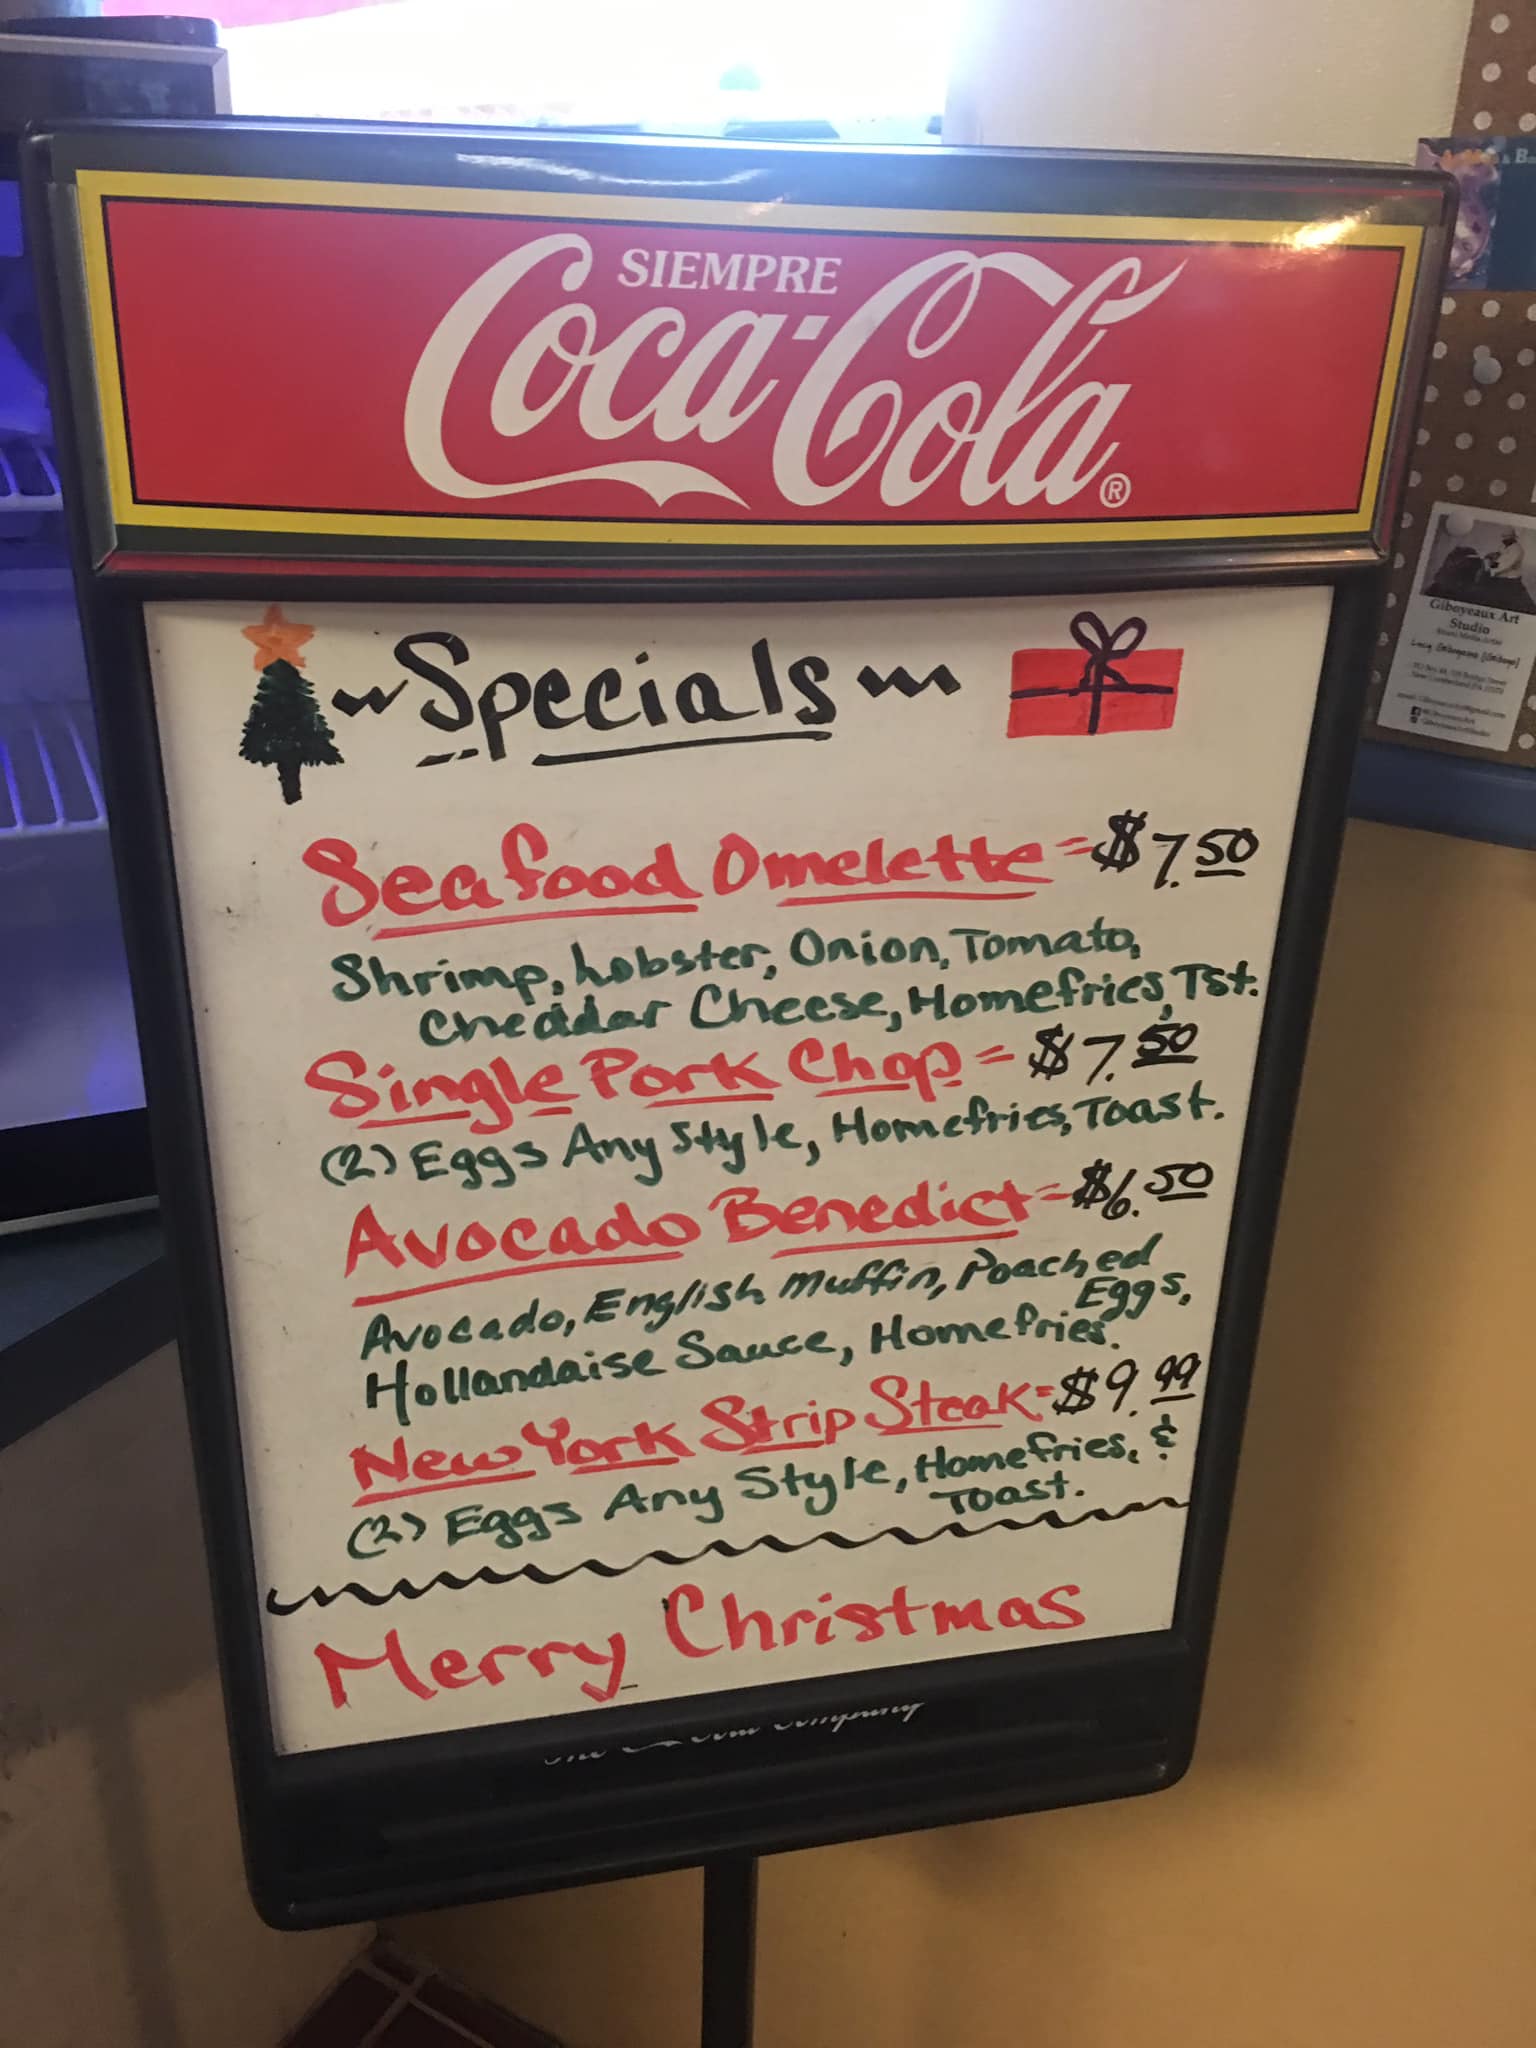 SIEMPRE
Coca-Cola®
Specials
Seafood Omelette = $7.50
Shrimp, Lobster, Onion, Tomato,
Cheddar Cheese, Homefries, Tst.
Single Pork Chop = $7.50
(2) Eggs Any Style, Homefries, Toast.
Avocado Benedict = $6.50
Avocado, English Muffin, Poached
Eggs,
Hollandaise Sauce, Homefries.
New York Strip Steak = $9.99
(2) Eggs Any Style, Homefries, &
Toast.
Merry Christmas
Company
Giboyeaux Art
Studio